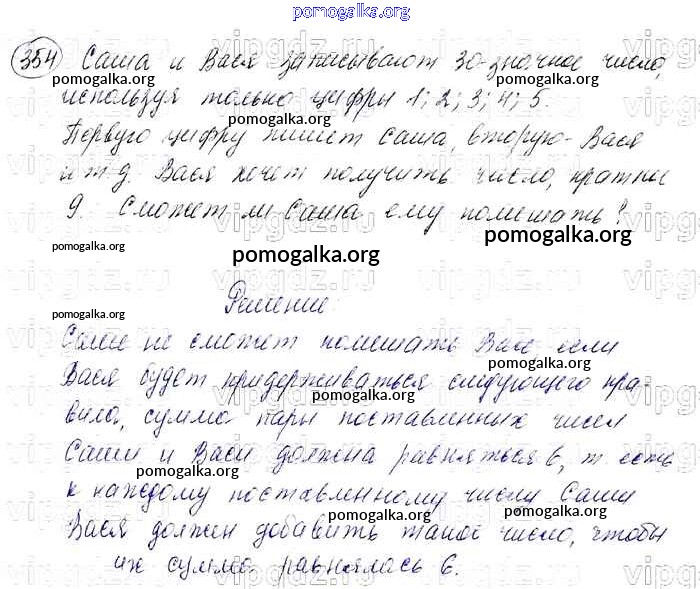 pomogalka.org
354 Саша и Вася записывают 30-значное число,
pomogalka.org pomogalka.org
используя только цифры 1; 2; 3; 4; 5.
pomogalka.org
Первую цифру пишет Саша, вторую - Вася
и т д. Вася хочет получить число, кратное
9. Сможет ли Саша ему помешать?
pomogalka.org pomogalka.org pomogalka.org
Решение:
pomogalka.org
Саше не сможет помешать Васе, если
pomogalka.org
Вася будет придерживаться следующего пра-
pomogalka.org
вила, сумма пары поставленных чисел
Саши и Васи должна равняться 6, т есть
pomogalka.org
к каждому поставленному числу Саши
pomogalka.org
Вася должен добавить такое число, чтобы
их сумма равнялась 6.
pomogalka.org